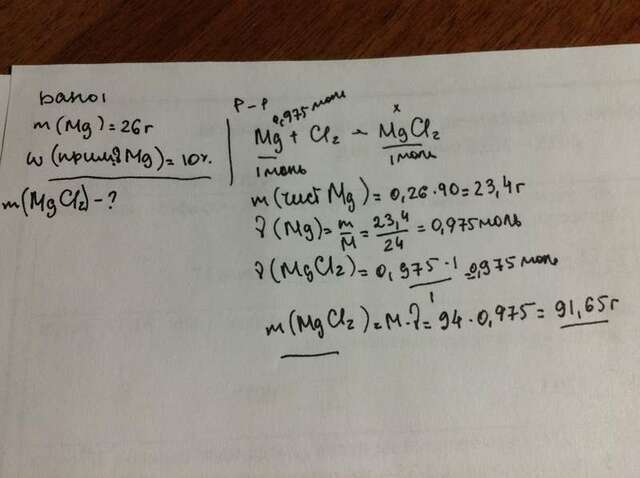 Дано
m(Mg)=26г
w(прим.вMg)=10%
m(MgCl2)-?
Р-р
0,975моль x
Mg + Cl2 - MgCl2
1моль 1моль
m(чист Mg) = 0,26·90=23,4г
ν(Mg)=m/M=23,4/24=0,975моль
ν(MgCl2)=0,975·1/1=0,975моль
m(MgCl2)=M·ν=94·0,975=91,65г